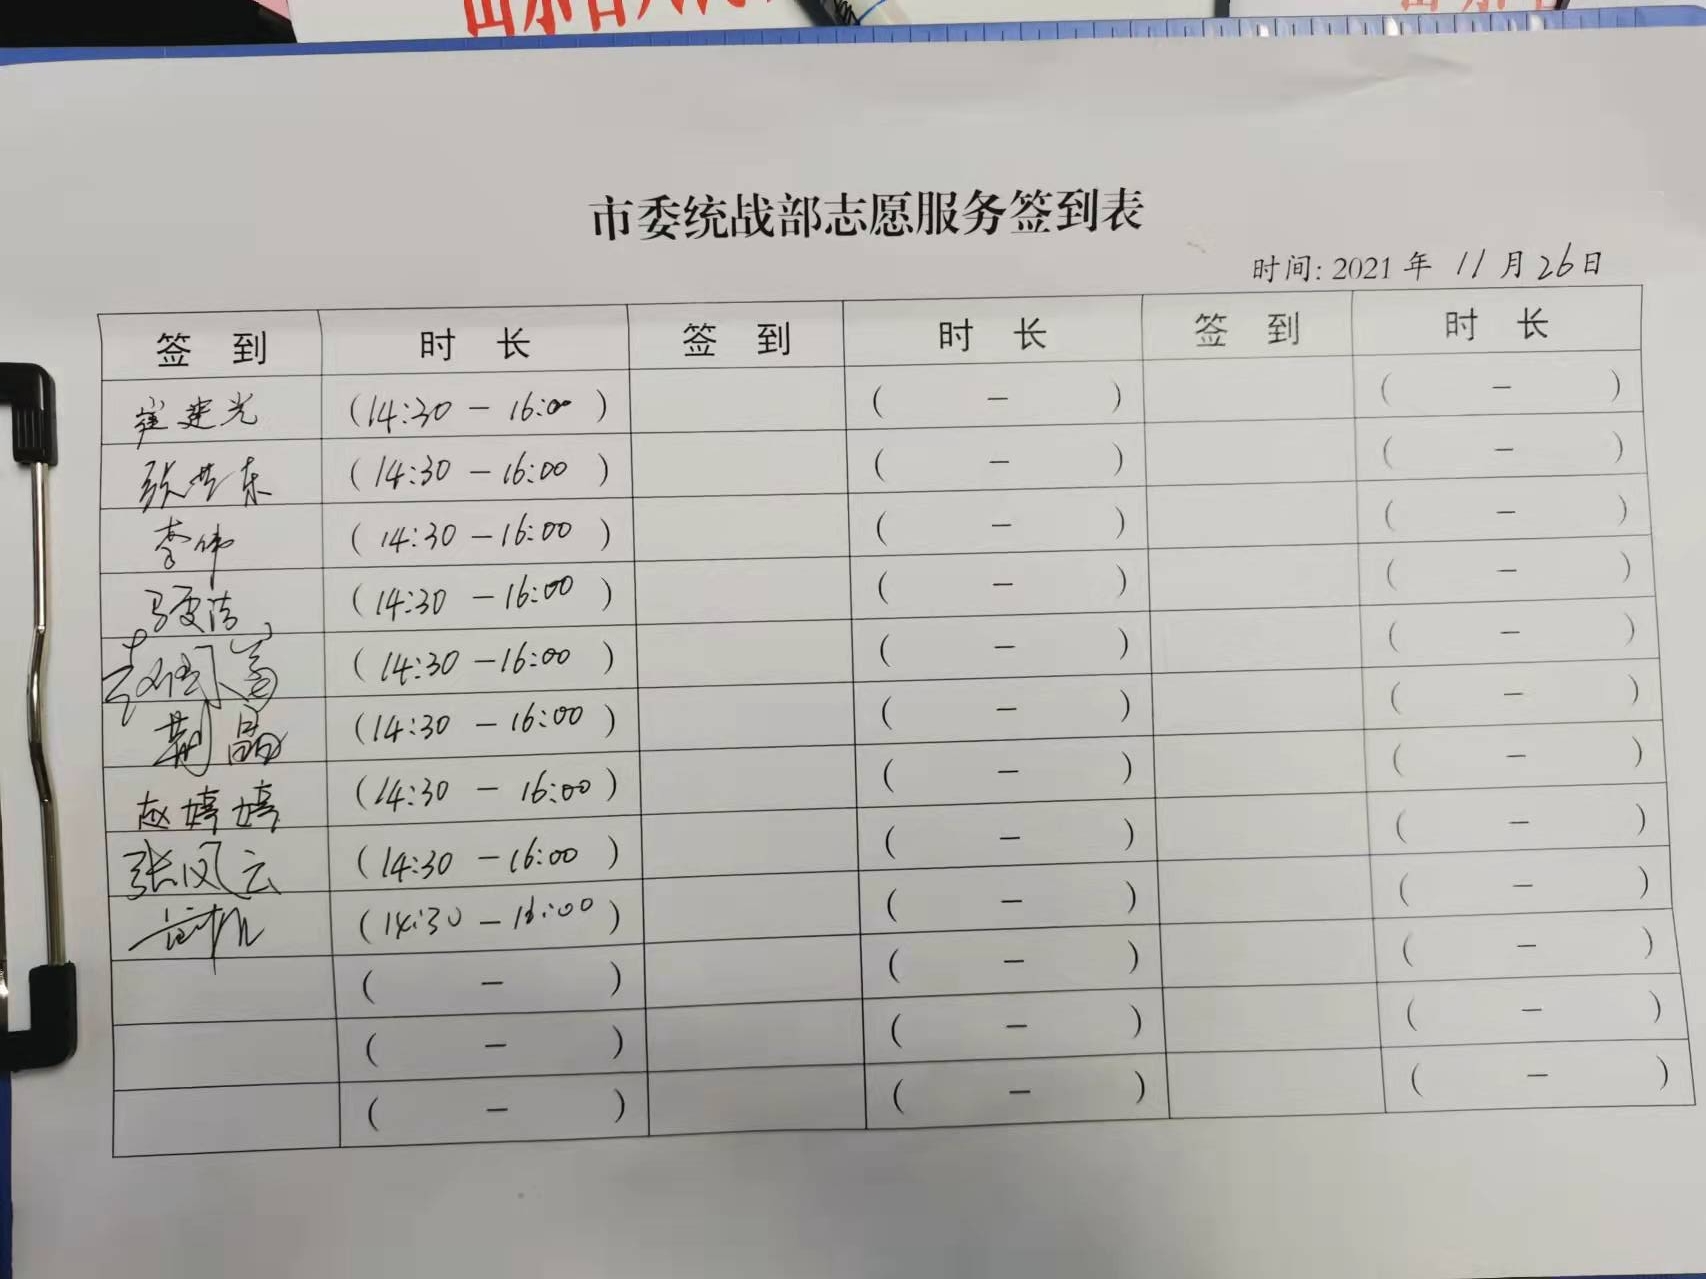 市委统战部志愿服务签到表
时间: 2021 年 11 月 26 日
签 到 时 长 签 到 时 长 签 到 时 长
崔建光 (14:30 - 16:00) ( - ) ( - )
张世东 (14:30 - 16:00) ( - ) ( - )
李伟 (14:30 - 16:00) ( - ) ( - )
马雯洁 (14:30 - 16:00) ( - ) ( - )
(14:30 - 16:00) ( - ) ( - )
荆晶 (14:30 - 16:00) ( - ) ( - )
赵婷婷 (14:30 - 16:00) ( - ) ( - )
张凤云 (14:30 - 16:00) ( - ) ( - )
(14:30 - 16:00) ( - ) ( - )
( - ) ( - ) ( - )
( - ) ( - ) ( - )
( - ) ( - ) ( - )